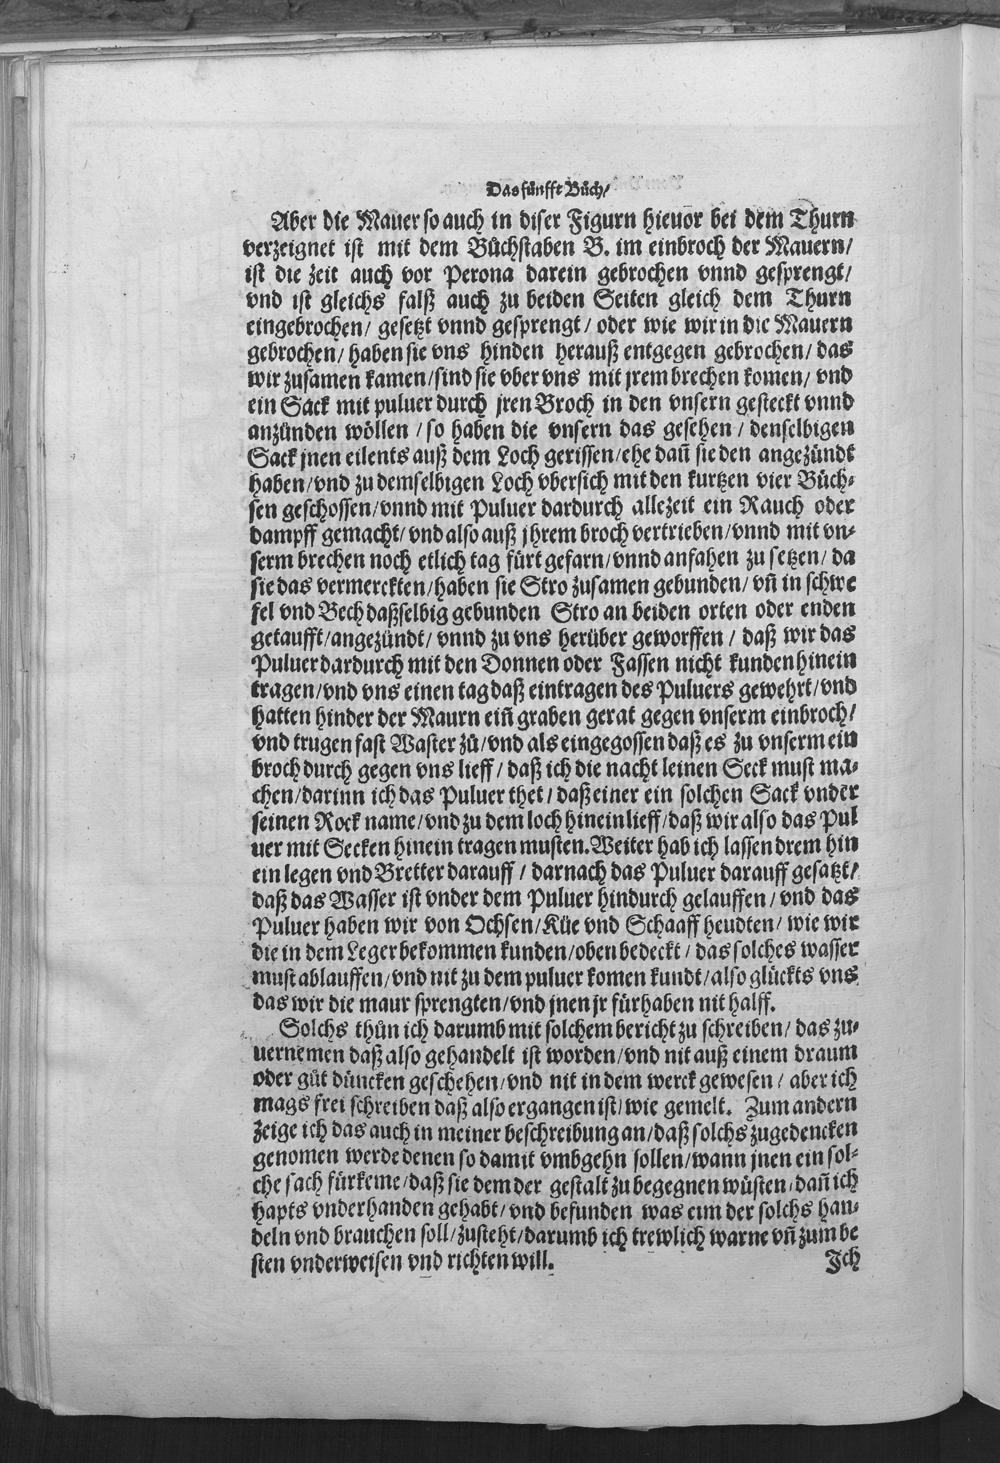 Das fünfft Bůch/
Aber die Mauer so auch in diser Figurn hieuor bei dem Thurn
verzeignet ist mit dem Bůchstaben B. im einbroch der Mauern/
ist die zeit auch vor Perona darein gebrochen vnnd gesprengt/
vnd ist gleichs falß auch zu beiden Seiten gleich dem Thurn
eingebrochen/ gesetzt vnnd gesprengt/ oder wie wir in die Mauern
gebrochen/ haben sie vns hinden herauß entgegen gebrochen/ das
wir zusamen kamen/ sind sie vber vns mit jrem brechen komen/ vnd
ein Sack mit puluer durch jren Broch in den vnsern gesteckt vnnd
anzünden wöllen/ so haben die vnsern das gesehen/ denselbigen
Sack jnen eilents auß dem Loch gerissen/ ehe dañ sie den angezündt
haben/ vnd zu demselbigen Loch vbersich mit den kurtzen vier Büch-
sen geschossen/ vnnd mit Puluer dardurch allezeit ein Rauch oder
dampff gemacht/ vnd also auß jhrem broch vertrieben/ vnnd mit vn-
serm brechen noch etlich tag fürt gefarn/ vnnd anfahen zu setzen/ da
sie das vermerckten/ haben sie Stro zusamen gebunden/ vñ in schwe
fel vnd Bech daßselbig gebunden Stro an beiden orten oder enden
getaufft/ angezündt/ vnnd zu vns herüber geworffen/ daß wir das
Puluer dardurch mit den Donnen oder Fassen nicht kunden hinein
tragen/ vnd vns einen tag daß eintragen des Puluers gewehrt/ vnd
hatten hinder der Maurn eiñ graben gerat gegen vnserm einbroch/
vnd trugen fast Waster zů/ vnd als eingegossen daß es zu vnserm ein
broch durch gegen vns lieff/ daß ich die nacht leinen Seck must ma-
chen/ darinn ich das Puluer thet/ daß einer ein solchen Sack vnder
seinen Rock name/ vnd zu dem loch hinein lieff/ daß wir also das Pul
uer mit Secken hinein tragen musten. Weiter hab ich lassen drem hin
ein legen vnd Bretter darauff/ darnach das Puluer darauff gesatzt/
daß das Wasser ist vnder dem Puluer hindurch gelauffen/ vnd das
Puluer haben wir von Ochsen/ Küe vnd Schaaff heudten/ wie wir
die in dem Leger bekommen kunden/ oben bedeckt/ das solches wasser
must ablauffen/ vnd nit zu dem puluer komen kundt/ also glückts vns
das wir die maur sprengten/ vnd jnen jr fürhaben nit halff.
Solchs thůn ich darumb mit solchem bericht zu schreiben/ das zu-
uernemen daß also gehandelt ist worden/ vnd nit auß einem draum
oder gůt düncken geschehen/ vnd nit in dem werck gewesen/ aber ich
mags frei schreiben daß also ergangen ist/ wie gemelt. Zum andern
zeige ich das auch in meiner beschreibung an/ daß solchs zugedencken
genomen werde denen so damit vmbgehn sollen/ wann jnen ein sol-
che sach fürkeme/ daß sie dem der gestalt zu begegnen wüsten/ dañ ich
hapts vnderhanden gehabt/ vnd befunden was eim der solchs han-
deln vnd brauchen soll/ zusteht/ darumb ich trewlich warne vñ zum be
sten vnderweisen vnd richten will.
Jch